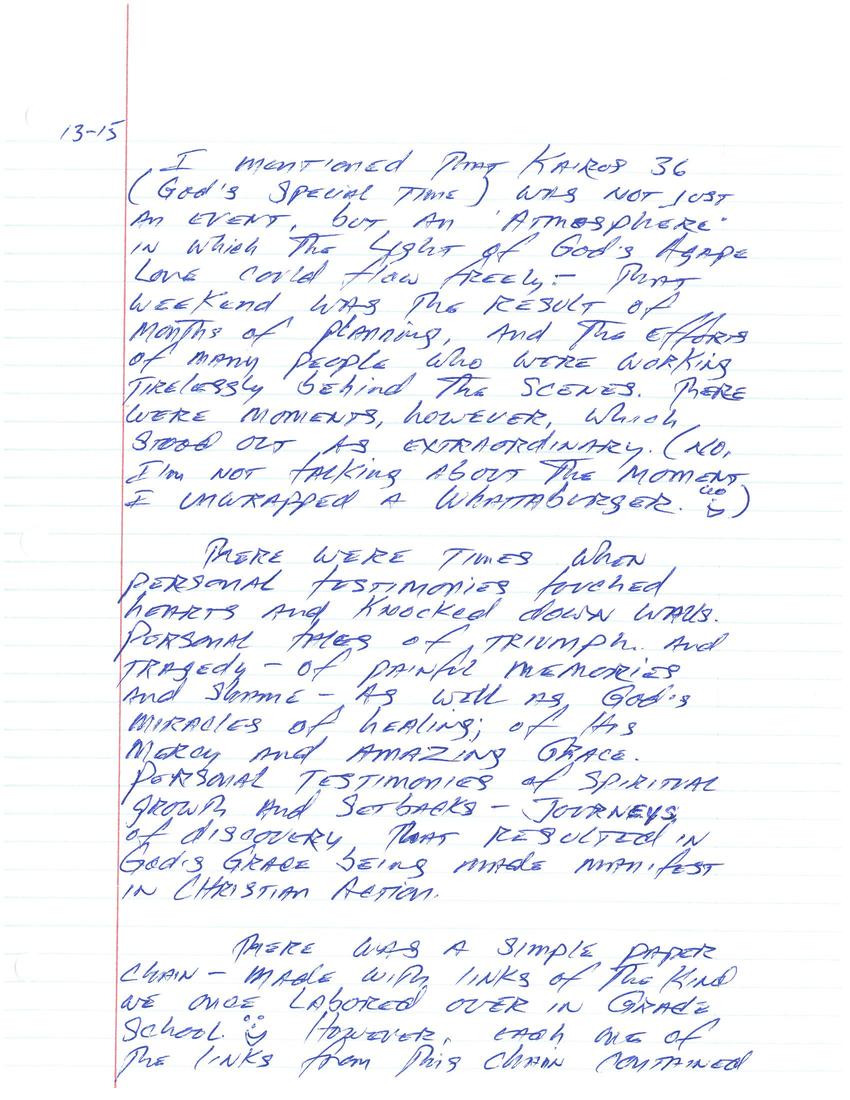 13-15
I mentioned that Kairos 36
(God's Special Time) was not just
an event, but an "Atmosphere"
in which the Light of God's Agape
Love could flow freely. - That
weekend was the result of
months of planning, and the efforts
of many people who were working
tirelessly behind the scenes. There
were moments, however, which
stood out as extraordinary. (No,
I'm not talking about the moment
I unwrapped a Whattaburger.)
There were times when
personal testimonies touched
hearts and knocked down walls.
Personal tales of triumph and
tragedy - of painful memories
and shame - as well as God's
miracles of healing; of His
Mercy and Amazing Grace.
Personal testimonies of Spiritual
growth and setbacks - Journeys
of discovery that resulted in
God's Grace being made manifest
in Christian Action.
There was a simple paper
chain - made with links of the kind
we once labored over in Grade
School. However, each one of
the links from this chain contained